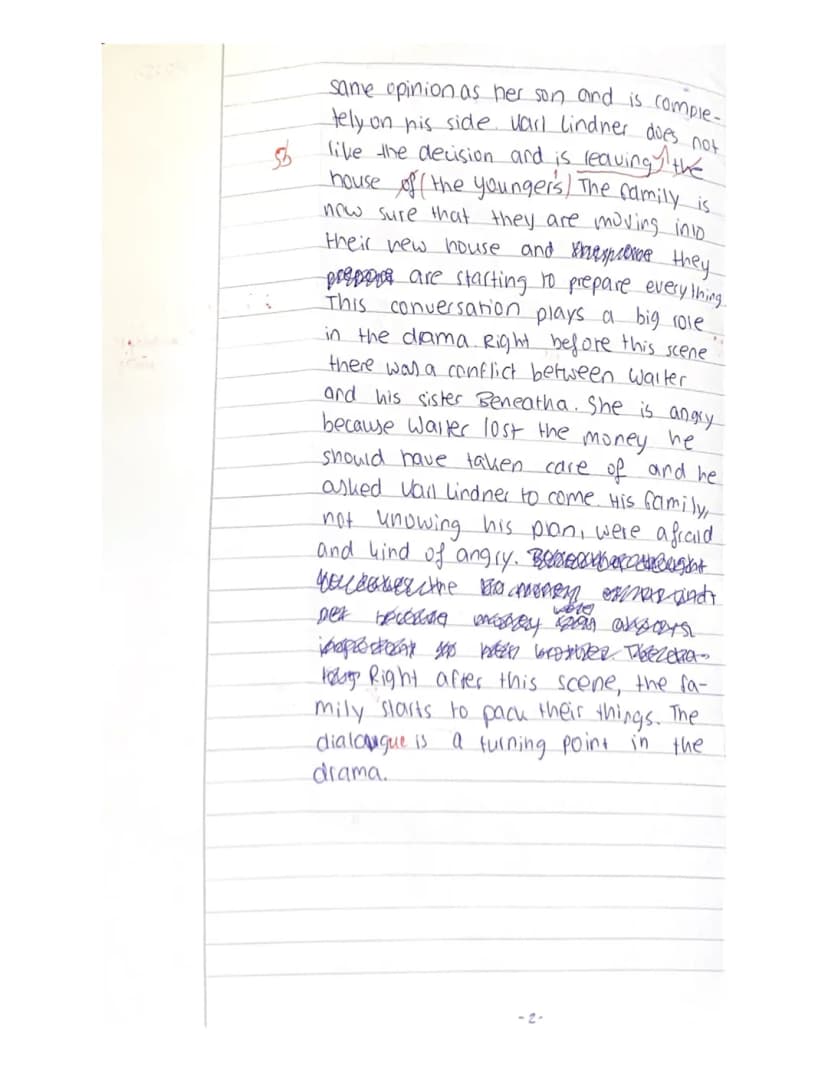 same opinion as her son and is comple-
tely on his side. Karl Lindner does not
Sb like the decision and is leaving the
house of (the younger's) The family is
now sure that they are moving into
their new house and they
are starting to prepare everything.
This conversation plays a big role
in the drama. Right before this scene
there was a conflict between Walter
and his sister Beneatha. She is angry
because Walter lost the money he
should have taken care of and he
asked Karl Lindner to come. His family,
not knowing his plan, were afraid
and kind of angry.
were
Right after this scene, the fa-
mily starts to pack their things. The
dialougue is a turning point in the
drama.
-2-